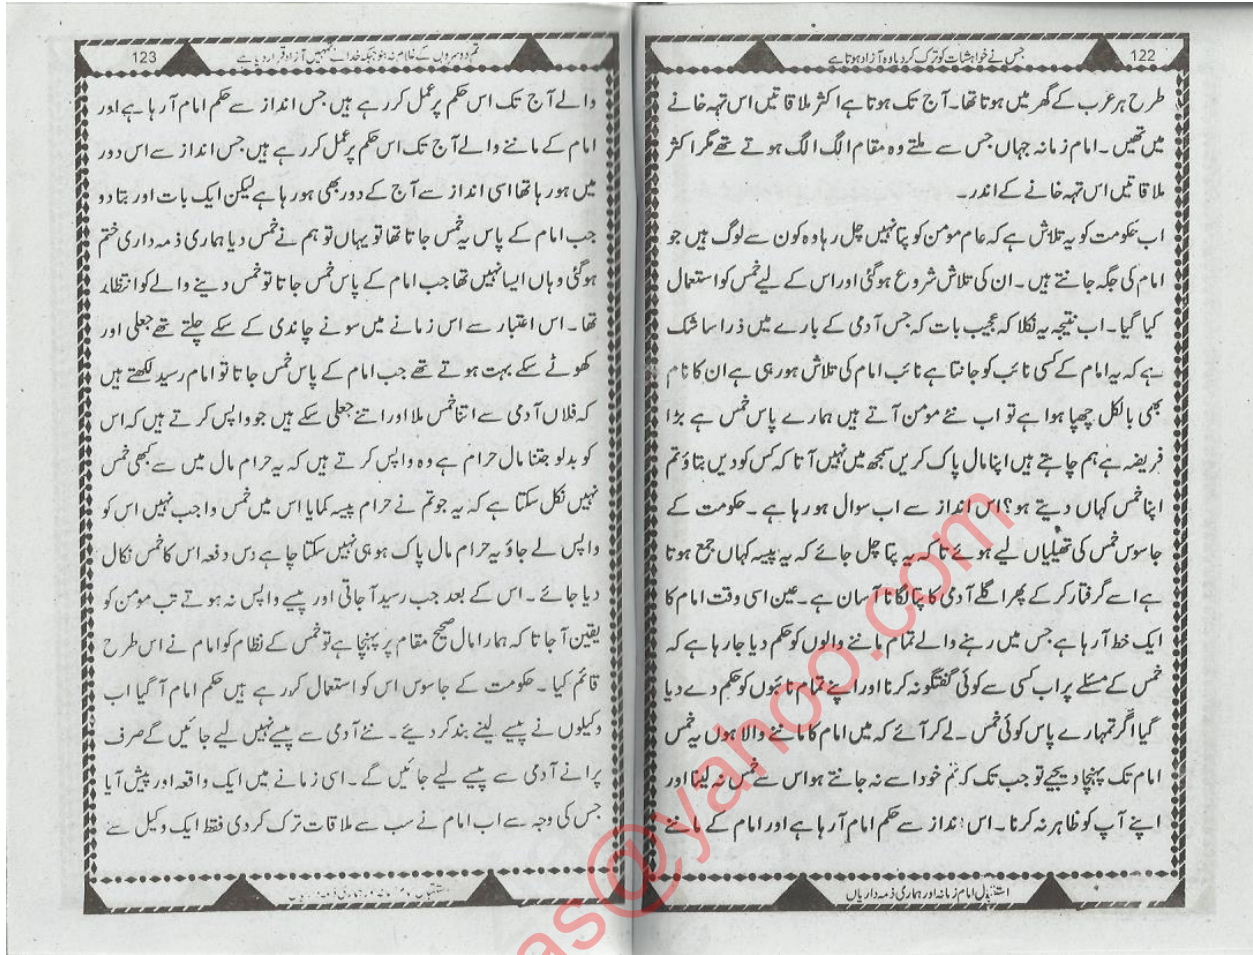 جس نے خواہشات کو ترک کر دیا وہ آزاد ہوتا ہے
122
طرح ہر عرب کے گھر میں ہوتا تھا۔ آج تک ہوتا ہے اکثر ملاقاتیں اس تہہ خانے
میں تھیں۔ امام زمانہ جہاں جس سے ملتے وہ مقام الگ الگ ہوتے تھے مگر اکثر
ملاقاتیں اس تہہ خانے کے اندر۔
اب حکومت کو یہ تلاش ہے کہ عام مومن کو پتا نہیں چل رہا وہ کون سے لوگ ہیں جو
امام کی جگہ جانتے ہیں۔ ان کی تلاش شروع ہو گئی اور اس کے لیے خمس کو استعمال
کیا گیا۔ اب نتیجہ یہ نکلا کہ عجیب بات کہ جس آدمی کے بارے میں ذرا سا شک
ہے کہ یہ امام کے کسی نائب کو جانتا ہے نائب امام کی تلاش ہو رہی ہے ان کا نام
بھی بالکل چھپا ہوا ہے تو اب نئے مومن آتے ہیں ہمارے پاس خمس ہے بڑا
فریضہ ہے ہم چاہتے ہیں اپنا مال پاک کریں سمجھ میں نہیں آتا کہ کس کو دیں بتاؤ تم
اپنا خمس کہاں دیتے ہو؟ اس انداز سے اب سوال ہو رہا ہے۔ حکومت کے
جاسوس خمس کی تھیلیاں لیے ہوئے تاکہ یہ پتا چل جائے کہ یہ پیسہ کہاں جمع ہوتا
ہے اسے گرفتار کر کے پھر اگلے آدمی کا پتا لگانا آسان ہے۔ عین اسی وقت امام کا
ایک خط آ رہا ہے جس میں رہنے والے تمام ماننے والوں کو حکم دیا جا رہا ہے کہ
خمس کے مسئلے پر اب کسی سے کوئی گفتگو نہ کرنا اور اپنے تمام نائبوں کو حکم دے دیا
گیا اگر تمہارے پاس کوئی خمس لے کر آئے کہ میں امام کا ماننے والا ہوں یہ خمس
امام تک پہنچا دیجیے تو جب تک کہ تم خود اسے نہ جانتے ہو اس سے خمس نہ لینا اور
اپنے آپ کو ظاہر نہ کرنا۔ اس انداز سے حکم امام آ رہا ہے اور امام کے ماننے
استقبال امام زمانہ اور ہماری ذمہ داریاں
تم دوسروں کے غلام نہ بنو جبکہ خدا نے تمہیں آزاد قرار دیا ہے
123
والے آج تک اس حکم پر عمل کر رہے ہیں جس انداز سے حکم امام آ رہا ہے اور
امام کے ماننے والے آج تک اس حکم پر عمل کر رہے ہیں جس انداز سے اس دور
میں ہو رہا تھا اسی انداز سے آج کے دور بھی ہو رہا ہے لیکن ایک بات اور بتا دو
جب امام کے پاس یہ خمس جاتا تھا تو یہاں تو ہم نے خمس دیا ہماری ذمہ داری ختم
ہو گئی وہاں ایسا نہیں تھا جب امام کے پاس خمس جاتا تو خمس دینے والے کو انتظار
تھا۔ اس اعتبار سے اس زمانے میں سونے چاندی کے سکے چلتے تھے جعلی اور
کھوٹے سکے بہت ہوتے تھے جب امام کے پاس خمس جاتا تو امام رسید لکھتے ہیں
کہ فلاں آدمی سے اتنا خمس ملا اور اتنے جعلی سکے ہیں جو واپس کرتے ہیں کہ اس
کو بدلو جتنا مال حرام ہے وہ واپس کرتے ہیں کہ یہ حرام مال میں سے کبھی خمس
نہیں نکل سکتا ہے کہ یہ جو تم نے حرام پیسہ کمایا اس میں خمس واجب نہیں اس کو
واپس لے جاؤ یہ حرام مال پاک ہو ہی نہیں سکتا چاہے دس دفعہ اس کا خمس نکال
دیا جائے۔ اس کے بعد جب رسید آ جاتی اور پیسے واپس نہ ہوتے تب مومن کو
یقین آ جاتا کہ ہمارا مال صحیح مقام پر پہنچا ہے تو خمس کے نظام کو امام نے اس طرح
قائم کیا۔ حکومت کے جاسوس اس کو استعمال کر رہے ہیں حکم امام آ گیا اب
وکیلوں نے پیسے لینے بند کر دیئے۔ نئے آدمی سے پیسے نہیں لیے جائیں گے صرف
پرانے آدمی سے پیسے لیے جائیں گے۔ اسی زمانے میں ایک واقعہ اور پیش آیا
جس کی وجہ سے اب امام نے سب سے ملاقات ترک کر دی فقط ایک وکیل سے
as@yahoo.com